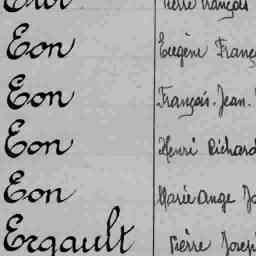 Pierre François
Eon Eugène Franç
Eon François-Jean-
Eon Henri Richard
Eon Marie Ange Jo
Ergault Pierre Josep